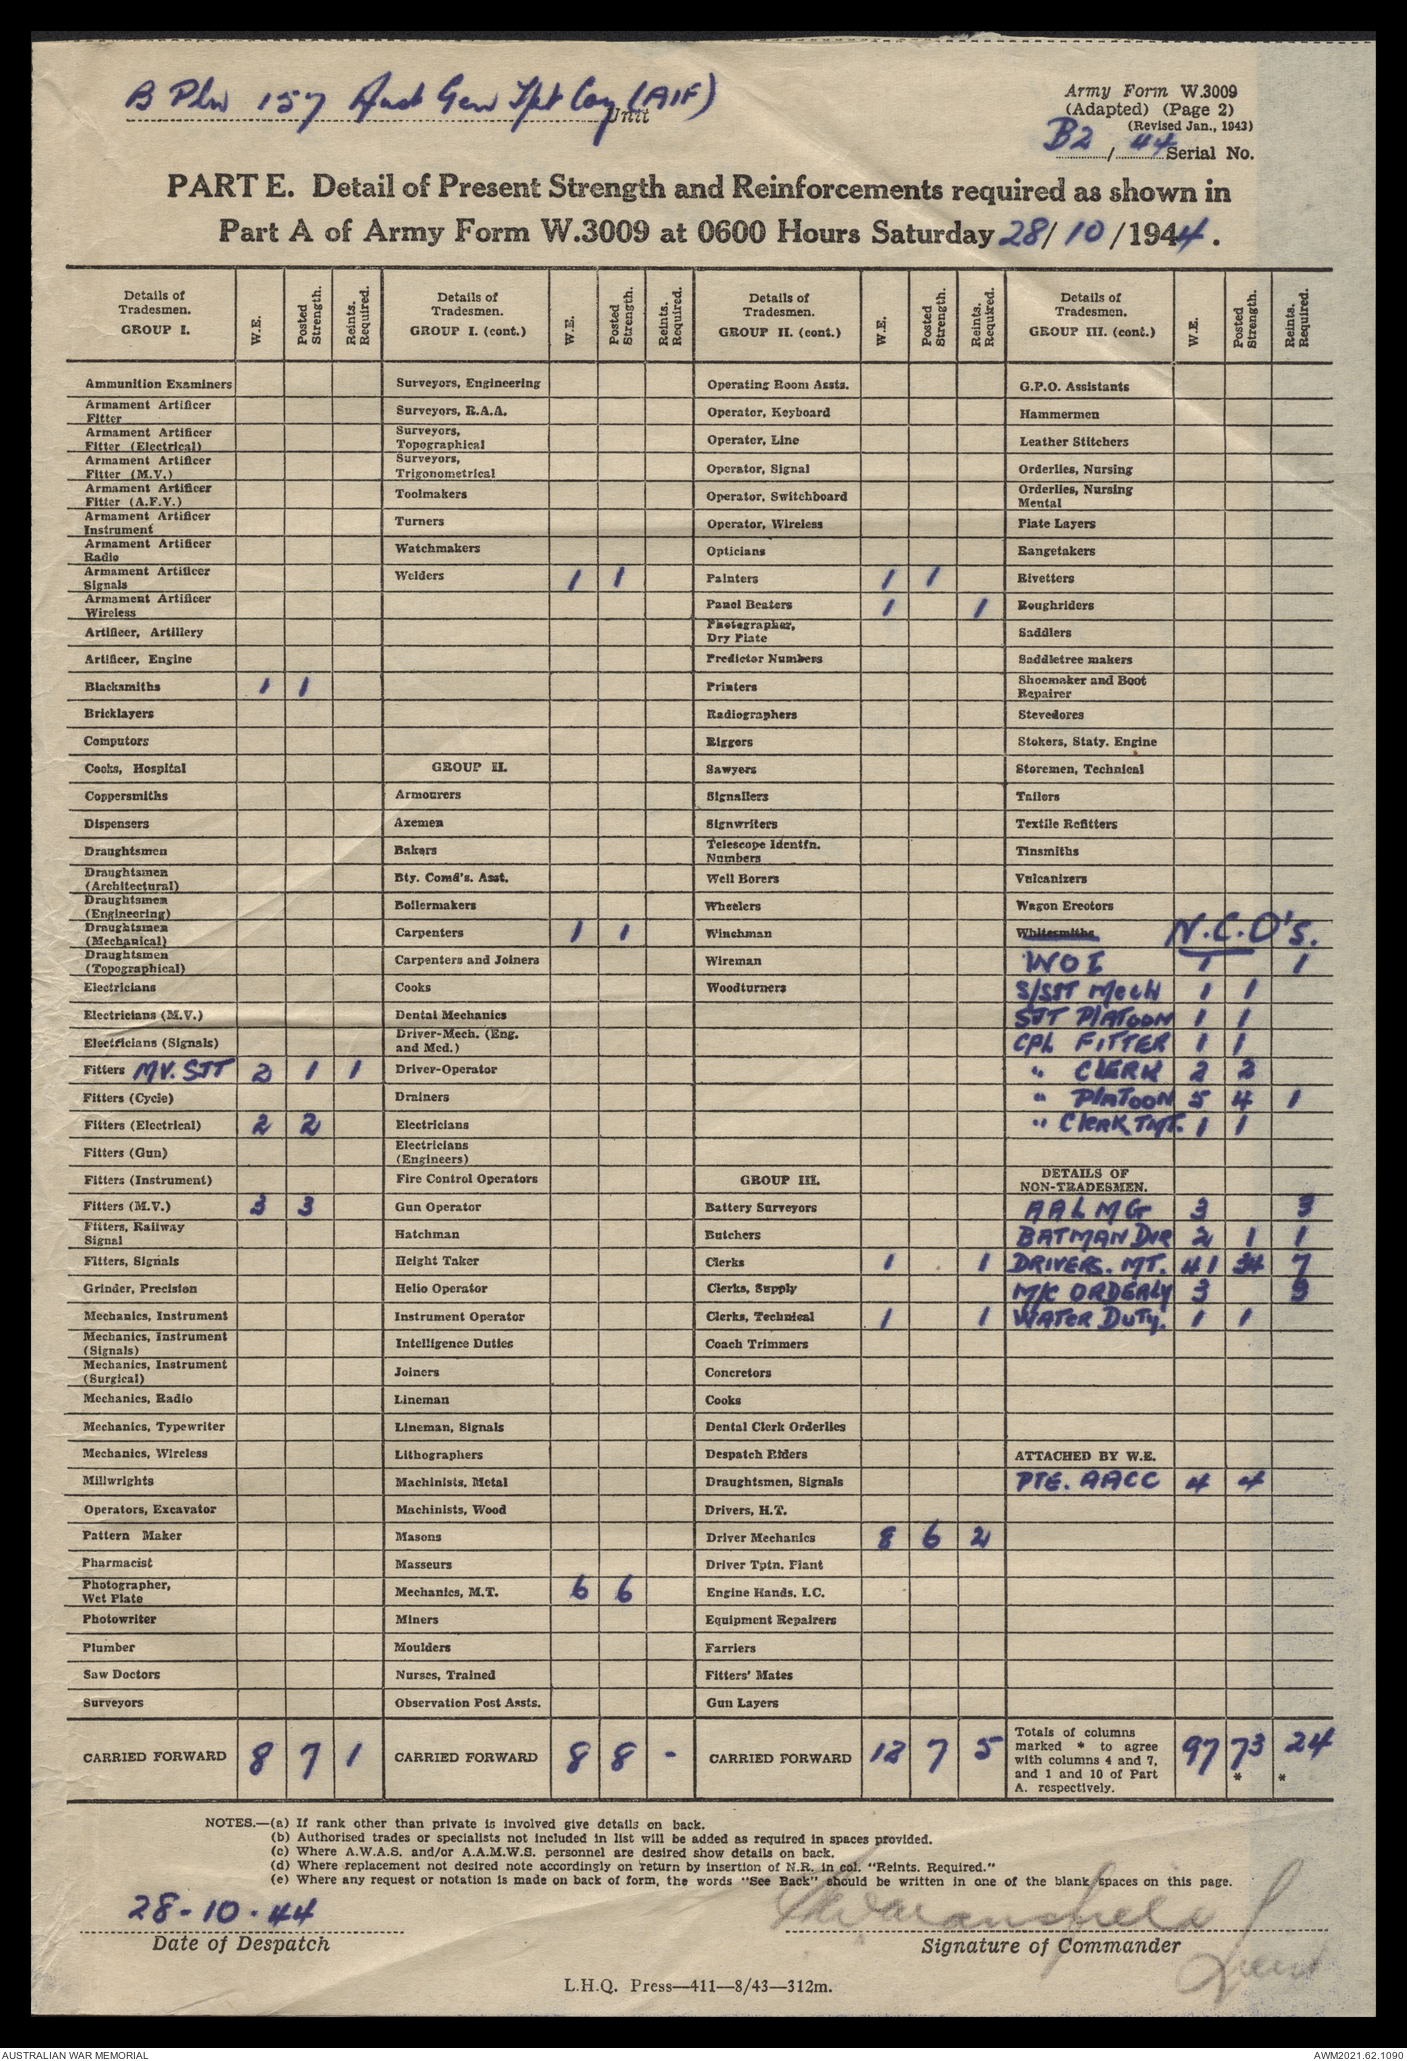 B Pln 157 Aust Gen Tpt Coy (AIF)
Unit
Army Form W.3009
(Adapted) (Page 2)
(Revised Jan., 1943)
B2 / 44 Serial No.
PART E. Detail of Present Strength and Reinforcements required as shown in
Part A of Army Form W.3009 at 0600 Hours Saturday 28/10/1944.
Details of Tradesmen. GROUP I. W.E. Posted Strength. Reints. Required.
Ammunition Examiners
Armament Artificer Fitter
Armament Artificer Fitter (Electrical)
Armament Artificer Fitter (M.V.)
Armament Artificer Fitter (A.F.V.)
Armament Artificer Instrument
Armament Artificer Radio
Armament Artificer Signals
Armament Artificer Wireless
Artificer, Artillery
Artificer, Engine
Blacksmiths 1 1
Bricklayers
Computors
Cooks, Hospital
Coppersmiths
Dispensers
Draughtsmen
Draughtsmen (Architectural)
Draughtsmen (Engineering)
Draughtsmen (Mechanical)
Draughtsmen (Topographical)
Electricians
Electricians (M.V.)
Electricians (Signals)
Fitters MV. SJT 2 1 1
Fitters (Cycle)
Fitters (Electrical) 2 2
Fitters (Gun)
Fitters (Instrument)
Fitters (M.V.) 3 3
Fitters, Railway Signal
Fitters, Signals
Grinder, Precision
Mechanics, Instrument
Mechanics, Instrument (Signals)
Mechanics, Instrument (Surgical)
Mechanics, Radio
Mechanics, Typewriter
Mechanics, Wireless
Millwrights
Operators, Excavator
Pattern Maker
Pharmacist
Photographer, Wet Plate
Photowriter
Plumber
Saw Doctors
Surveyors
CARRIED FORWARD 8 7 1
Details of Tradesmen. GROUP I. (cont.) W.E. Posted Strength. Reints. Required.
Surveyors, Engineering
Surveyors, R.A.A.
Surveyors, Topographical
Surveyors, Trigonometrical
Toolmakers
Turners
Watchmakers
Welders 1 1
GROUP II.
Armourers
Axemen
Bakers
Bty. Comd's. Asst.
Boilermakers
Carpenters 1 1
Carpenters and Joiners
Cooks
Dental Mechanics
Driver-Mech. (Eng. and Med.)
Driver-Operator
Drainers
Electricians
Electricians (Engineers)
Fire Control Operators
Gun Operator
Hatchman
Height Taker
Helio Operator
Instrument Operator
Intelligence Duties
Joiners
Lineman
Lineman, Signals
Lithographers
Machinists, Metal
Machinists, Wood
Masons
Masseurs
Mechanics, M.T. 6 6
Miners
Moulders
Nurses, Trained
Observation Post Assts.
CARRIED FORWARD 8 8 -
Details of Tradesmen. GROUP II. (cont.) W.E. Posted Strength. Reints. Required.
Operating Room Assts.
Operator, Keyboard
Operator, Line
Operator, Signal
Operator, Switchboard
Operator, Wireless
Opticians
Painters 1 1
Panel Beaters 1 1
Photographer, Dry Plate
Predictor Numbers
Printers
Radiographers
Riggers
Sawyers
Signallers
Signwriters
Telescope Identfn. Numbers
Well Borers
Wheelers
Winchman
Wireman
Woodturners
GROUP III.
Battery Surveyors
Butchers
Clerks 1 1
Clerks, Supply
Clerks, Technical 1 1
Coach Trimmers
Concretors
Cooks
Dental Clerk Orderlies
Despatch Riders
Draughtsmen, Signals
Drivers, H.T.
Driver Mechanics 8 6 2
Driver Tptn. Plant
Engine Hands, I.C.
Equipment Repairers
Farriers
Fitters' Mates
Gun Layers
CARRIED FORWARD 12 7 5
Details of Tradesmen. GROUP III. (cont.) W.E. Posted Strength. Reints. Required.
G.P.O. Assistants
Hammermen
Leather Stitchers
Orderlies, Nursing
Orderlies, Nursing Mental
Plate Layers
Rangetakers
Rivetters
Roughriders
Saddlers
Saddletree makers
Shoemaker and Boot Repairer
Stevedores
Stokers, Staty. Engine
Storemen, Technical
Tailors
Textile Refitters
Tinsmiths
Vulcanizers
Wagon Erectors
Whitesmiths N.C.O's.
WO I 1 1
S/SJT MECH 1 1
SJT PLATOON 1 1
CPL FITTER 1 1
" CLERK 2 2
" PLATOON 5 4 1
" CLERK TMT. 1 1
DETAILS OF NON-TRADESMEN.
AALMG 3 3
BATMAN DVR 2 1 1
DRIVERS. MT. 41 34 7
M/C ORDERLY 3 3
WATER DUTY. 1 1
ATTACHED BY W.E.
PTE. AACC 4 4
Totals of columns marked * to agree with columns 4 and 7, and 1 and 10 of Part A. respectively. 97 73 * 24 *
NOTES.—(a) If rank other than private is involved give details on back.
(b) Authorised trades or specialists not included in list will be added as required in spaces provided.
(c) Where A.W.A.S. and/or A.A.M.W.S. personnel are desired show details on back.
(d) Where replacement not desired note accordingly on return by insertion of N.R. in col. "Reints. Required."
(e) Where any request or notation is made on back of form, the words "See Back" should be written in one of the blank spaces on this page.
28-10-44
Date of Despatch
Signature of Commander
Lieut
L.H.Q. Press—411—8/43—312m.
AUSTRALIAN WAR MEMORIAL
AWM2021.62.1090